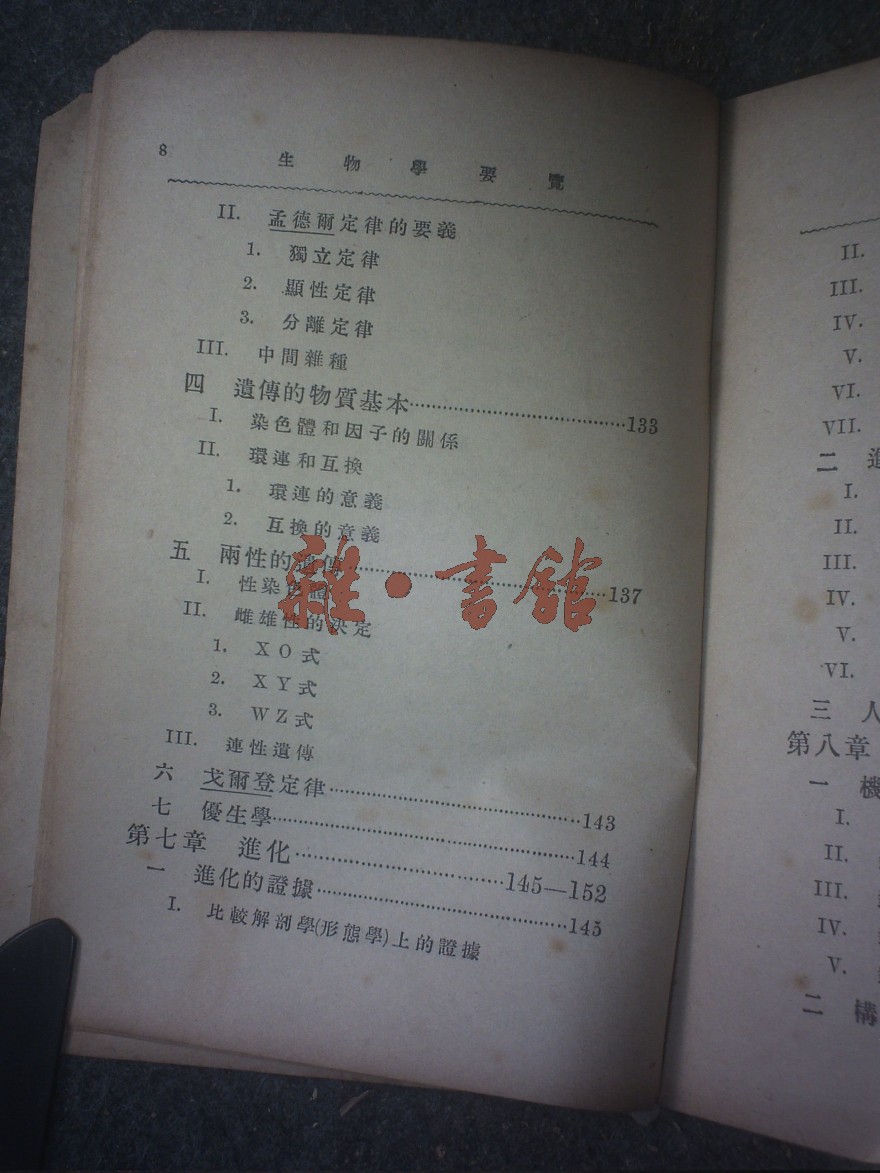 8 生物學要覽
II. 孟德爾定律的要義
1. 獨立定律
2. 顯性定律
3. 分離定律
III. 中間雜種
四 遺傳的物質基本……133
I. 染色體和因子的關係
II. 環連和互換
1. 環連的意義
2. 互換的意義
五 兩性的遺傳……137
I. 性染色體
II. 雌雄性的決定
1. XO式
2. XY式
3. WZ式
III. 連性遺傳
六 戈爾登定律……143
七 優生學……144
第七章 進化……145—152
一 進化的證據……145
I. 比較解剖學(形態學)上的證據
雜·書館
II.
III.
IV.
V.
VI.
VII.
二 進
I.
II.
III.
IV.
V.
VI.
三 人
第八章
一 機
I.
II.
III.
IV.
V.
二 構